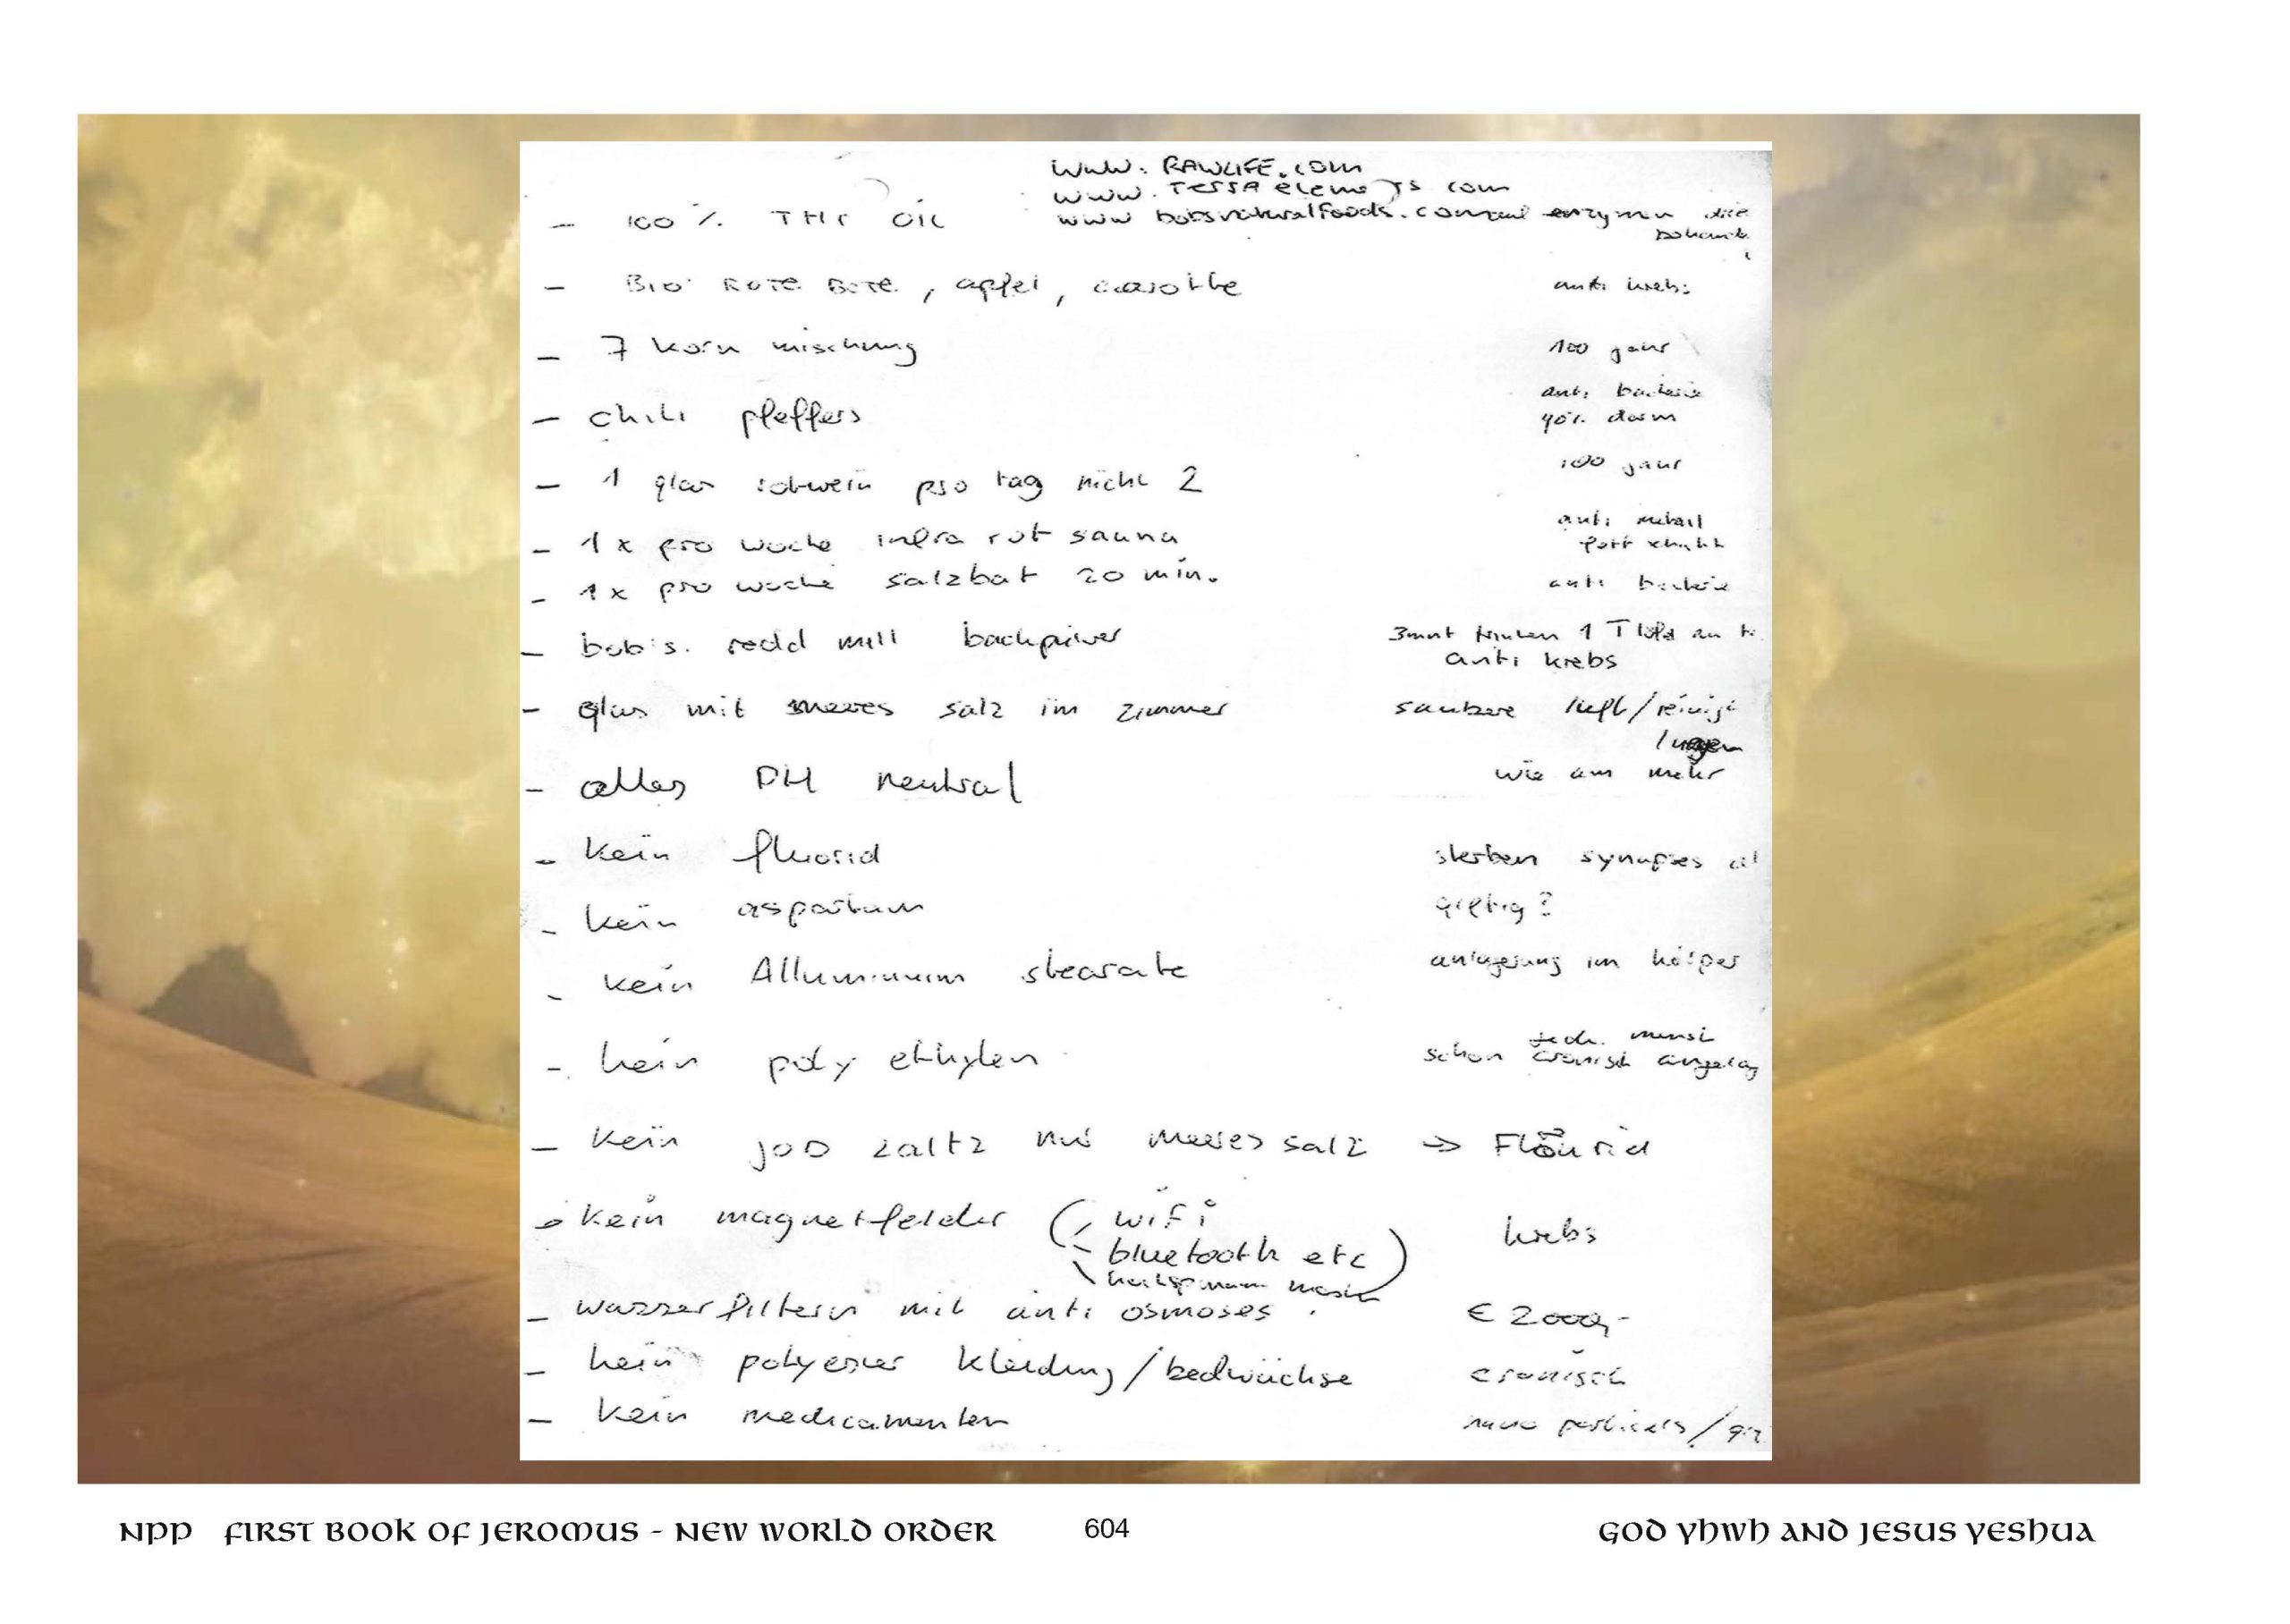 www. RAWLIFE.com
www. TerrA elements com
www bobsnaturalfoods.com enzymen die
- 100 % THC OIL
- BIO ROTE BETE, apfel, carotte anti krebs
- 7 korn mischung 100 jahr
- chili pfeffers anti bacterie
90% darm
- 1 glas rotwein pro tag nicht 2 100 jahr
- 1 x pro woche infra rot sauna anti metall
- 1 x pro woche salzbat 20 min. anti bacterie
- bob's. redd mill backpulver 3mnt trinken 1 T
anti krebs
- glas mit meeres salz im zimmer saubere luft/reinigt
lungen
- alles PH neutral wie am mehr
- kein fluorid sterben synapses
- kein aspartam giftig?
- kein Alluminium stearate anlagerung im körper
- kein poly ethylen schon cronisch angelag
- kein JOD zaltz nur meeres salz → Flourid
- kein magnetfelder ( wifi krebs
bluetooth etc )
- wasser filtern mit anti osmoses € 2000,-
- kein polyester kleidung/bedwächse cronisch
- kein medicamenten nano particels/
NPP FIRST BOOK OF JEROMUS - NEW WORLD ORDER 604 GOD YHWH AND JESUS YESHUA